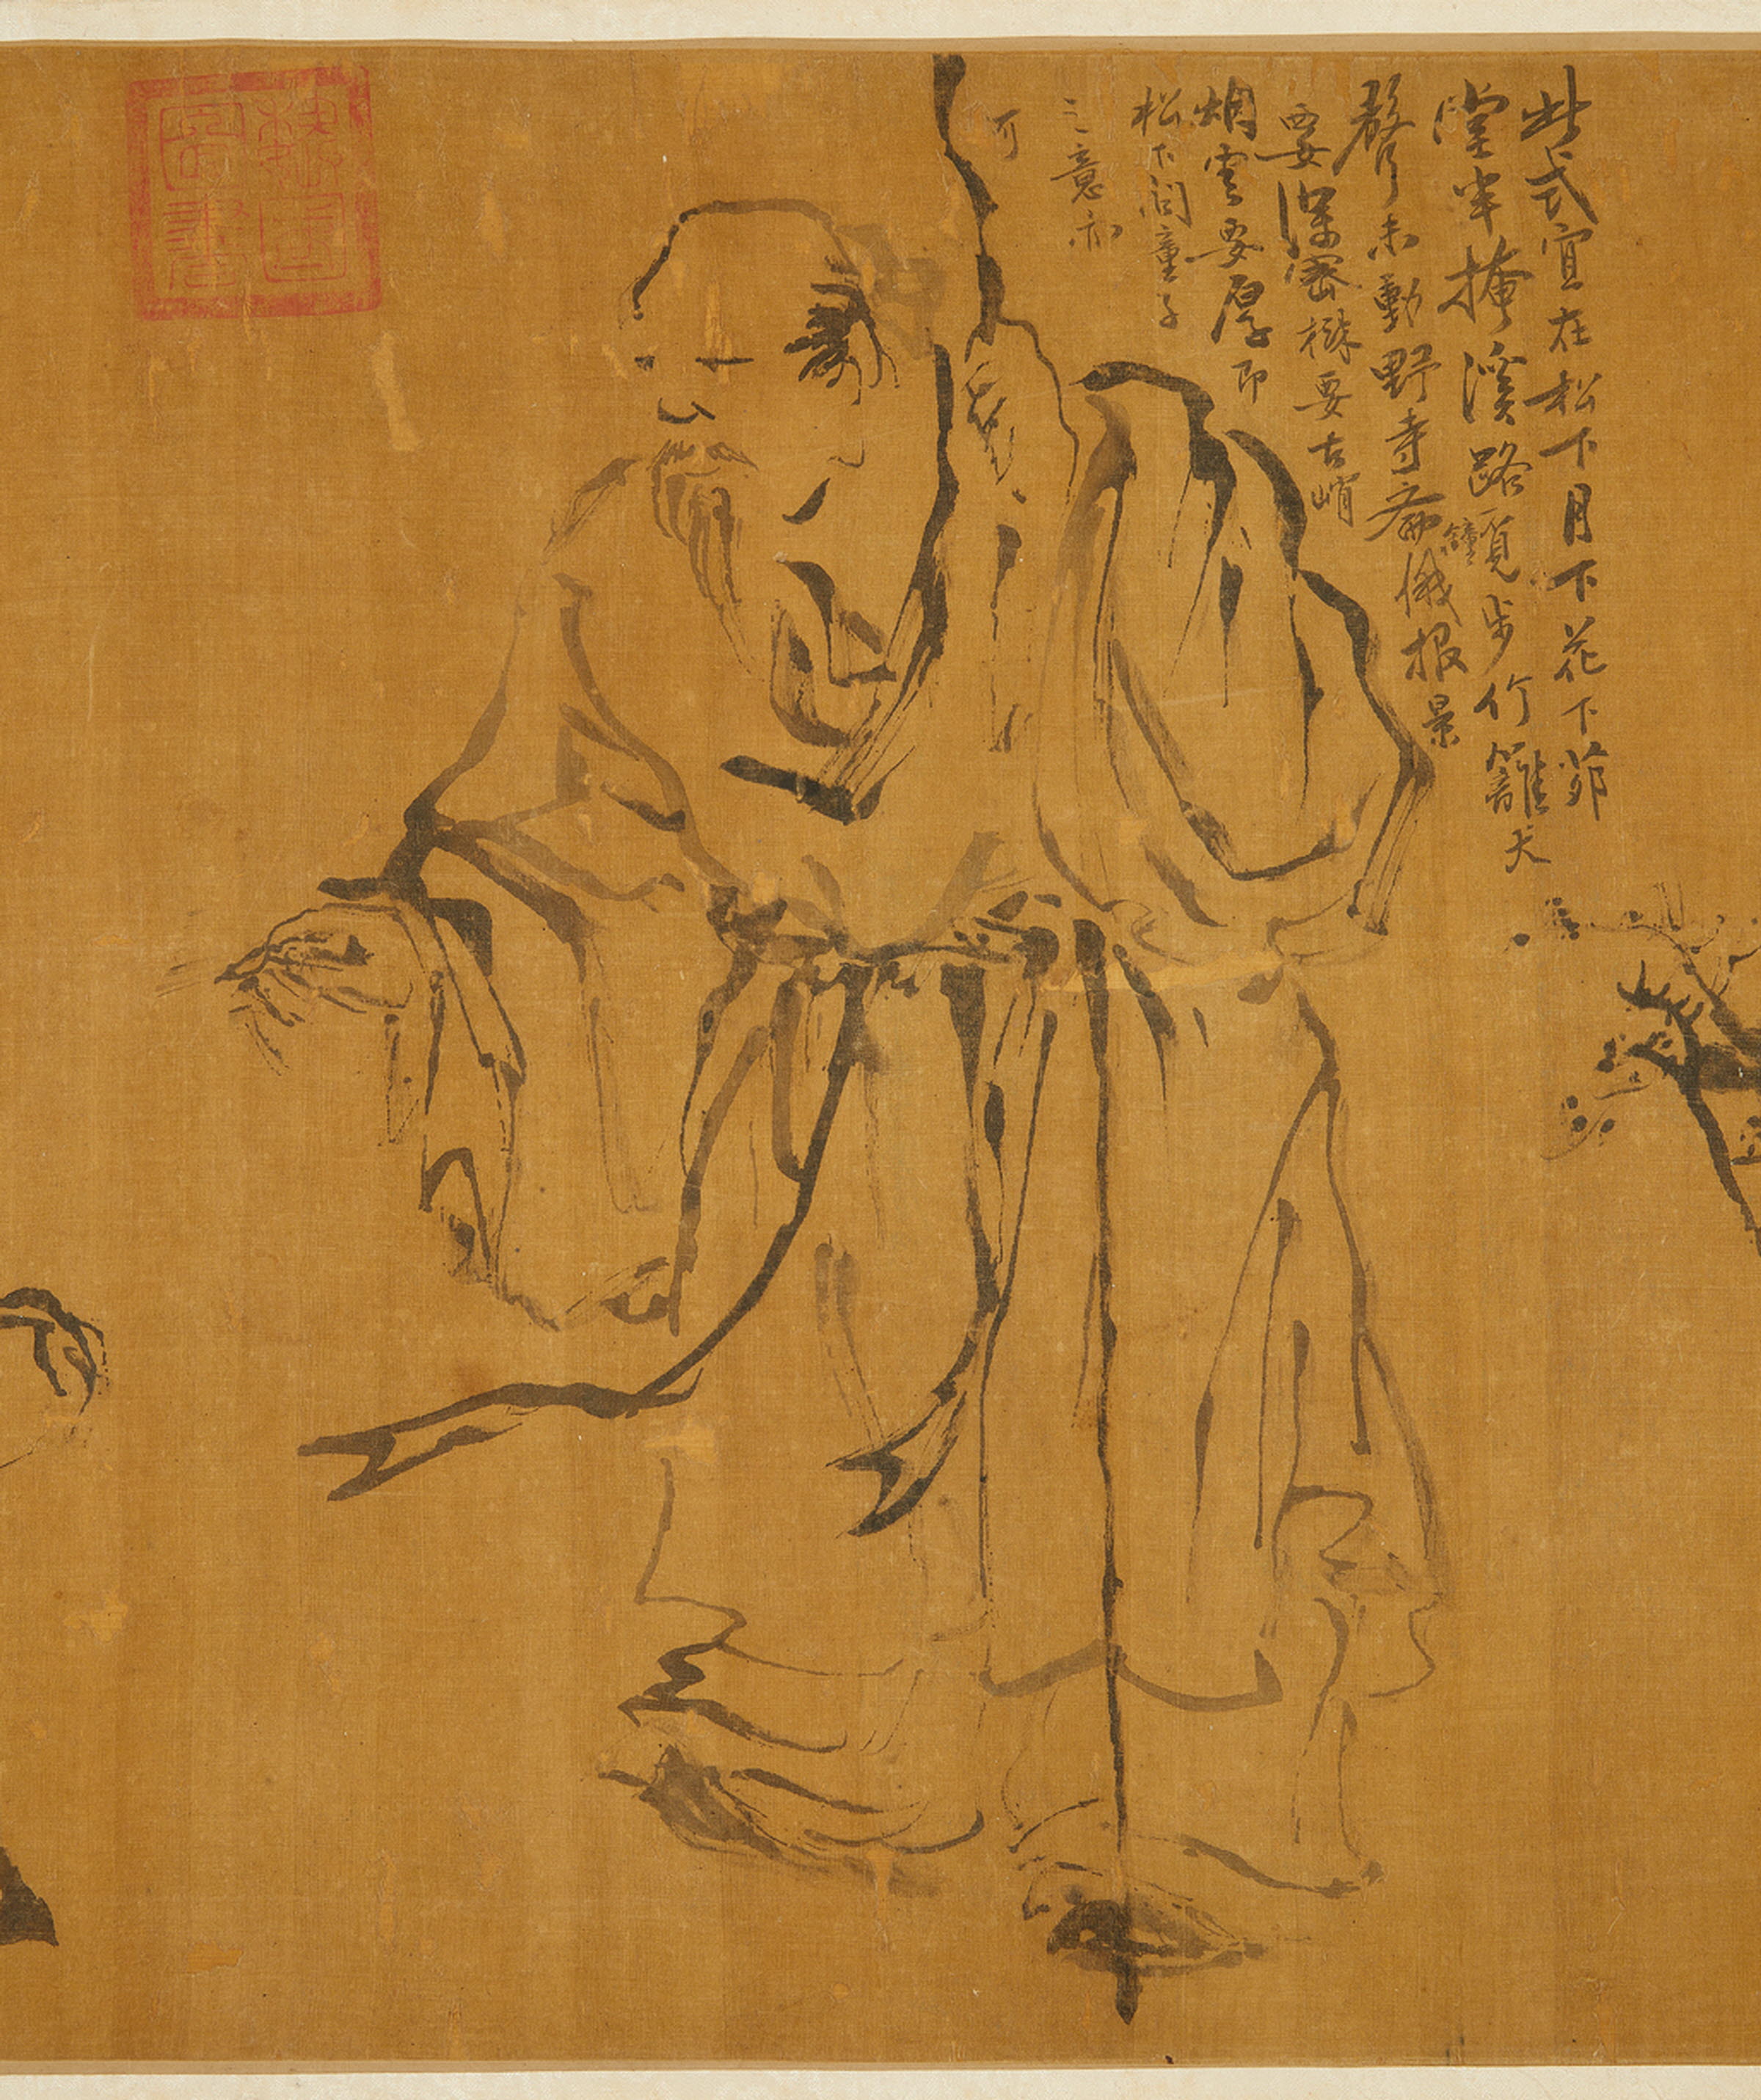 此式宜在松下月下花下茆
堂半掩溪路覓步竹籬犬
聲未動野寺齋鐘俄报景
要深密樹要古峭
烟雲要厚即
松下問童子
之意亦
可